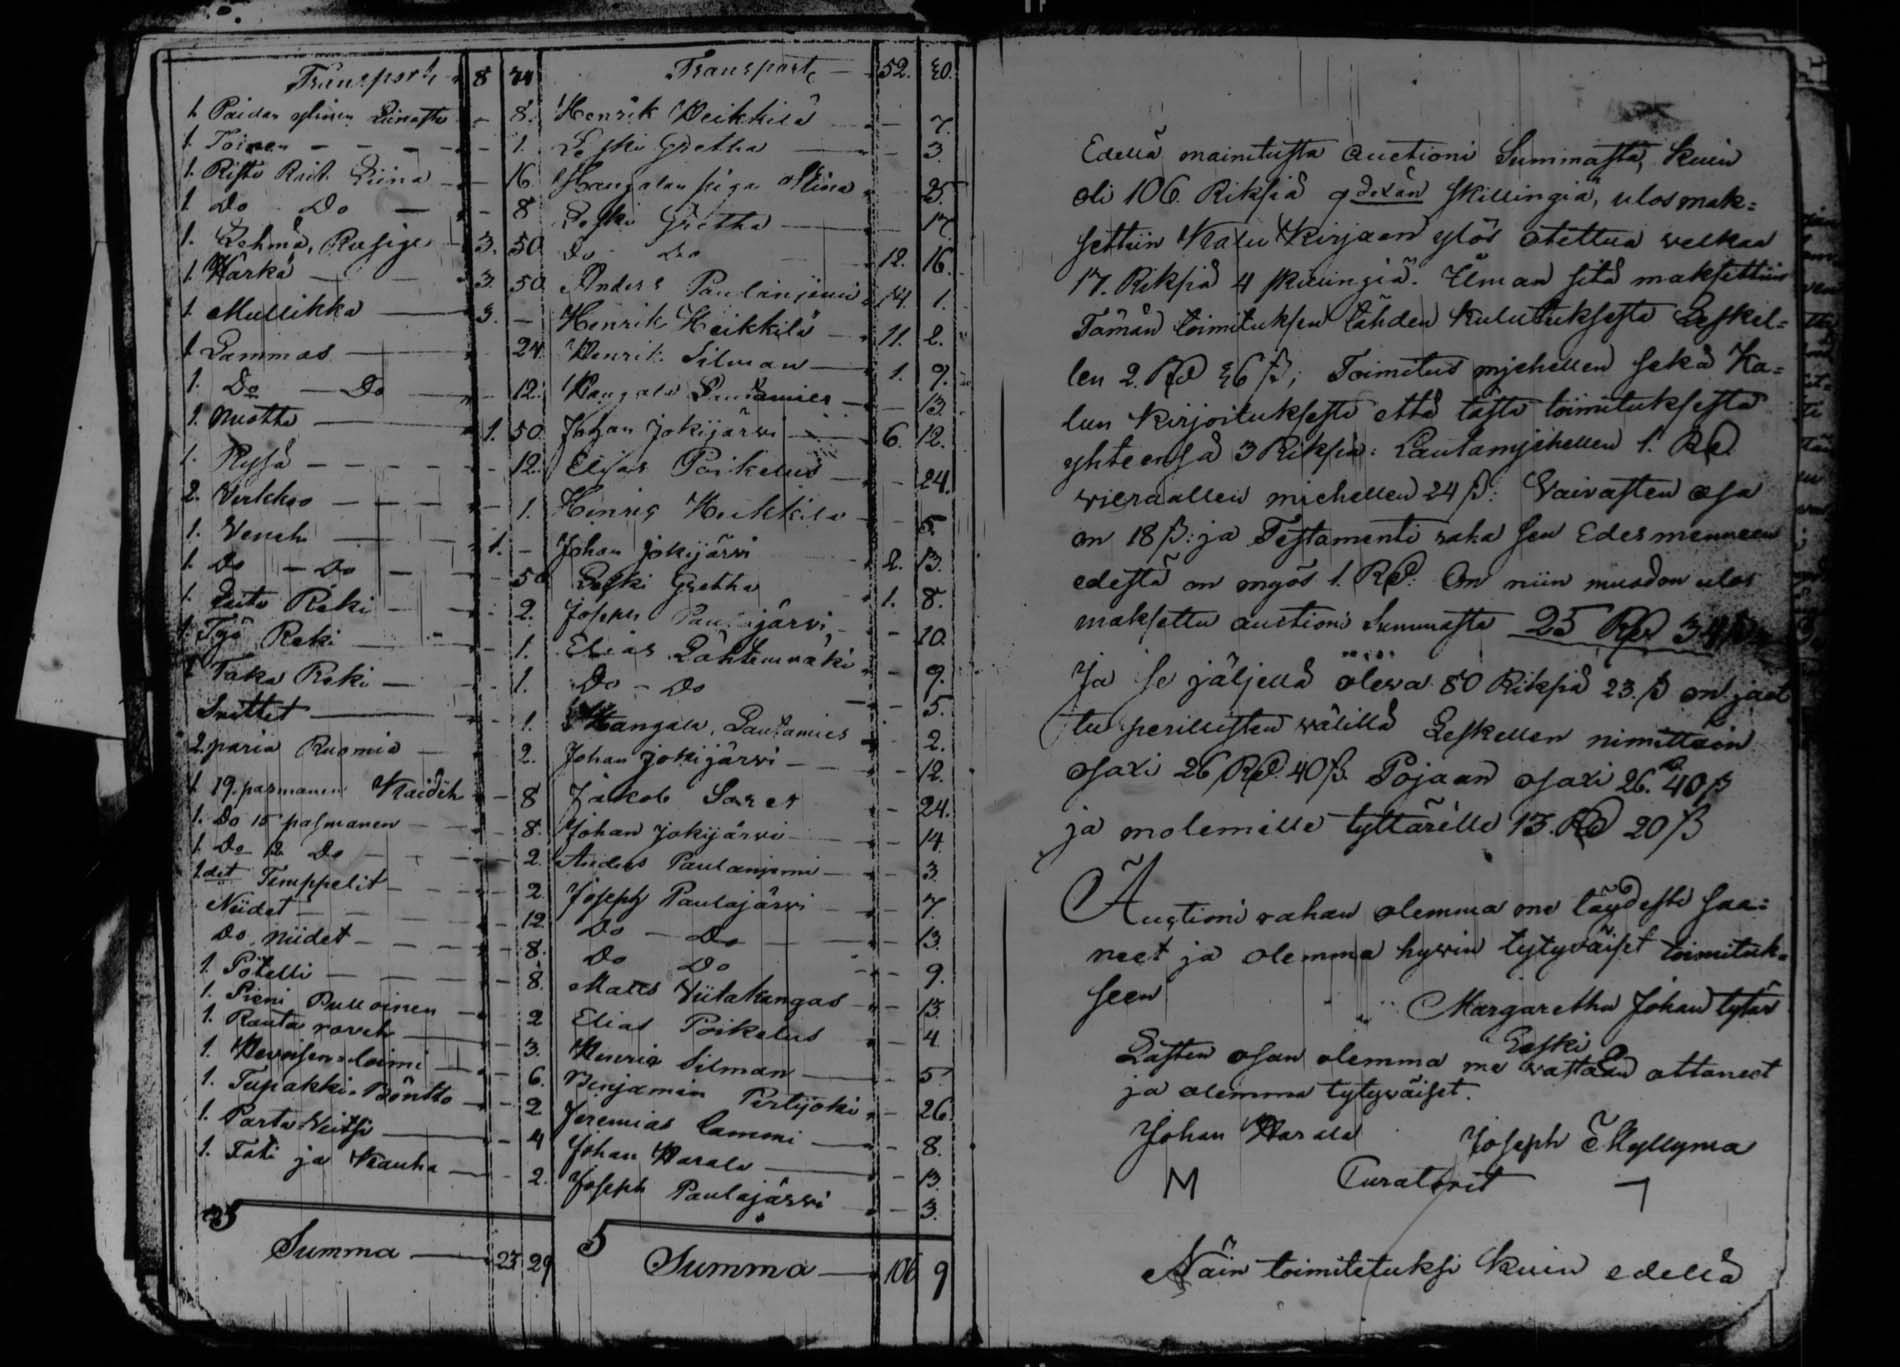 Transport 8 Transport 52. 20.
1. Paidan Liinasta - 8. Henrik Heikkilä - 7.
1. Toinen - 1. Leski Gretha - 3.
1. Risti Rait. Liina - 16 Hangalan piga Stina 25.
1 Do Do - 8 Leski Gretha - 17
1. Lehmä, 3. 50. Do Do 12. 16.
1. Härkä 3. 50 Anders Paulinjemi 14. 1.
1. Mullikka 3. - Henrik Heikkilä 11. 2.
1 Lammas 24 Henrik Silman 1. 9.
1. Do - Do 12. Hangala Lautamies - 13.
1. Nuotta 1. 50 Johan Jokijärvi 6. 12.
1. Ryssä - 12. Elias Poikelus - 24.
2. Verkkoo - 1. Henrig Heikkila - 5.
1. Veneh 1. - Johan Jokijärvi 2. 13.
1. Do - Do - 50 Leski Gretha 1. 8.
1. Reki - 2. Joseph Paulajärvi - 10.
1. Työ Reki - 1. Elias Lähtenmäki - 9.
1 Taka Reki - 1. Do - Do - 5.
Suittet - 1. Hangala, Lautamies 2.
2. paria Ruomia - 2. Johan Jokijärvi - 12.
1. 19. pasmanen Kaideh - 8 Jakob Sares - 24.
1. Do 15 pasmanen 8. Johan Jokijärvi - 14
1. Do 12 Do - 2. Anders Paulanjemi - 3.
1. det Temppelit - 2. Joseph Paulajärvi - 7.
Niidet - 12 Do - Do - 13.
Do. niidet - 8. Do Do - 9.
1. Pötelli - 8. Matts Viitakangas - 13.
1. Pieni Pulloinen - 2 Elias Poikelus - 4
1. Rauta - 3. Henric Silman - 5.
1. Hevoisen-loimi - 6. Benjamin Perttjoki - 26
1. Tupakki-Bönttö - 2 Jeremias Lammi - 8.
1. Parta Veitsi - 4 Johan Harala - 13.
1. Fati ja Kauha - 2. Joseph Paulajärvi - 3.
Summa 23 29 Summa 106 9
Edellä mainitusta auctioni Summasta, kuin
oli 106. Riksiä 9 skillingiä, ulosmak=
settiin Kalu Kirjaan ylös otettua velkaa
17. Riksiä 4 skillingiä. Ilman sitä maksettiin
Tämän toimituksen tähden kulutuksesta Leskel=
len 2. Rd 36 ß; Toimitus mjehellen sekä Ka=
lun kirjoituksesta että tästä toimituksesta
yhteensä 3 Riksiä: Lautamjehellen 1. Rd.
vieraallen miehellen 24 ß: Vaivasten osa
on 18 ß: ja Testamenti raha sen Edesmenneen
edestä on myös 1. Rd. On niin muodon ulos
maksettu auctioni Summasta 25 Rd 34 ß
Ja se jäljellä oleva 80 Riksiä 23. ß on jaet
tu perillisten välillä Leskellen nimittäin
osaxi 26 Rd. 40 ß Pojaan osaxi 26. 40 ß
ja molemille tyttärille 13. Rd 20 ß
Auctioni rahan olemma me täydesti saa=
neet ja olemma hyvin tytyväiset toimituk=
seen Margaretha Johan tytär
Leski
Lasten osan olemma me vastaan ottaneet
ja olemma tytyväiset.
Johan Harala Joseph Myllymä
M Curatorit
Näin toimitetuksi kuin edellä